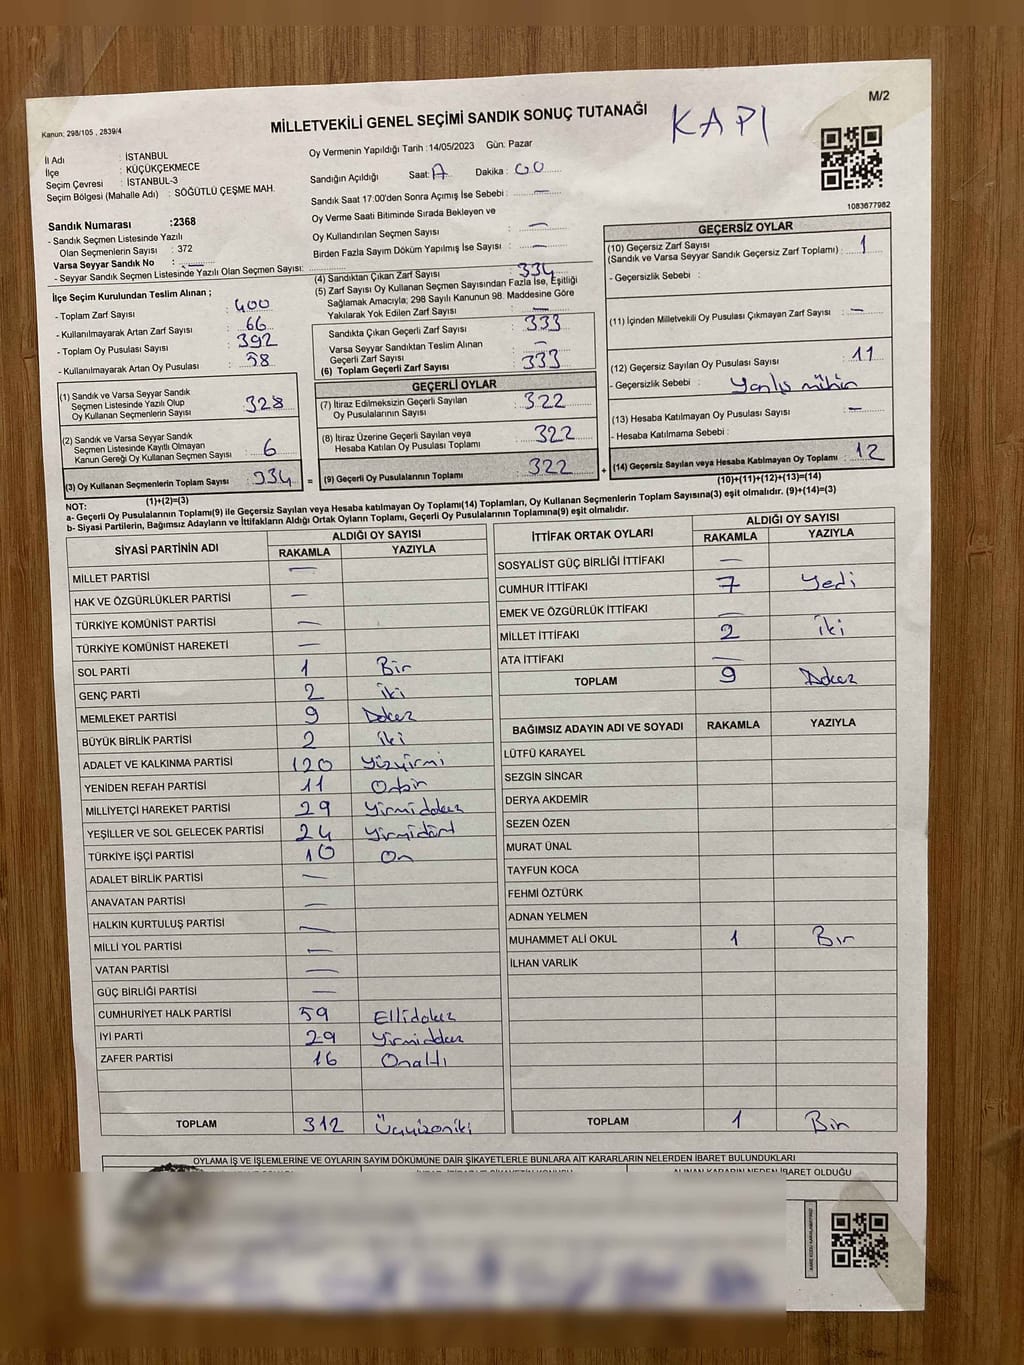 Kanun: 298/105 , 2839/4
MİLLETVEKİLİ GENEL SEÇİMİ SANDIK SONUÇ TUTANAĞI
KAPI
M/2
İl Adı : İSTANBUL
İlçe : KÜÇÜKÇEKMECE
Seçim Çevresi : İSTANBUL-3
Seçim Bölgesi (Mahalle Adı) : SÖĞÜTLÜ ÇEŞME MAH.
Oy Vermenin Yapıldığı Tarih : 14/05/2023 Gün: Pazar
Sandığın Açıldığı Saat: Dakika : 00
Sandık Saat 17:00'den Sonra Açımış İse Sebebi : —
Oy Verme Saati Bitiminde Sırada Bekleyen ve
Oy Kullandırılan Seçmen Sayısı : —
Birden Fazla Sayım Döküm Yapılmış İse Sayısı : —
1083677982
Sandık Numarası :2368
- Sandık Seçmen Listesinde Yazılı
Olan Seçmenlerin Sayısı : 372
Varsa Seyyar Sandık No : —
- Seyyar Sandık Seçmen Listesinde Yazılı Olan Seçmen Sayısı:
İlçe Seçim Kurulundan Teslim Alınan ;
- Toplam Zarf Sayısı : 400
- Kullanılmayarak Artan Zarf Sayısı : 66
- Toplam Oy Pusulası Sayısı : 392
- Kullanılmayarak Artan Oy Pusulası : 58
(1) Sandık ve Varsa Seyyar Sandık
Seçmen Listesinde Yazılı Olup
Oy Kullanan Seçmenlerin Sayısı : 328
(2) Sandık ve Varsa Seyyar Sandık
Seçmen Listesinde Kayıtlı Olmayan
Kanun Gereği Oy Kullanan Seçmen Sayısı : 6
(3) Oy Kullanan Seçmenlerin Toplam Sayısı : 334
(1)+(2)=(3)
(4) Sandıktan Çıkan Zarf Sayısı : 334
(5) Zarf Sayısı Oy Kullanan Seçmen Sayısından Fazla İse, Eşitliği
Sağlamak Amacıyla; 298 Sayılı Kanunun 98. Maddesine Göre
Yakılarak Yok Edilen Zarf Sayısı : —
Sandıkta Çıkan Geçerli Zarf Sayısı : 333
Varsa Seyyar Sandıktan Teslim Alınan
Geçerli Zarf Sayısı : —
(6) Toplam Geçerli Zarf Sayısı : 333
GEÇERLİ OYLAR
(7) İtiraz Edilmeksizin Geçerli Sayılan
Oy Pusulalarının Sayısı : 322
(8) İtiraz Üzerine Geçerli Sayılan veya
Hesaba Katılan Oy Pusulası Toplamı : 322
= (9) Geçerli Oy Pusulalarının Toplamı : 322 +
GEÇERSİZ OYLAR
(10) Geçersiz Zarf Sayısı : 1
(Sandık ve Varsa Seyyar Sandık Geçersiz Zarf Toplamı)
- Geçersizlik Sebebi :
(11) İçinden Milletvekili Oy Pusulası Çıkmayan Zarf Sayısı : —
(12) Geçersiz Sayılan Oy Pusulası Sayısı : 11
- Geçersizlik Sebebi : Yanlış mühür
(13) Hesaba Katılmayan Oy Pusulası Sayısı : —
- Hesaba Katılmama Sebebi :
(14) Geçersiz Sayılan veya Hesaba Katılmayan Oy Toplamı : 12
(10)+(11)+(12)+(13)=(14)
NOT:
a- Geçerli Oy Pusulalarının Toplamı(9) ile Geçersiz Sayılan veya Hesaba katılmayan Oy Toplamı(14) Toplamları, Oy Kullanan Seçmenlerin Toplam Sayısına(3) eşit olmalıdır. (9)+(14)=(3)
b- Siyasi Partilerin, Bağımsız Adayların ve İttifakların Aldığı Ortak Oyların Toplamı, Geçerli Oy Pusulalarının Toplamına(9) eşit olmalıdır.
SİYASİ PARTİNİN ADI ALDIĞI OY SAYISI
RAKAMLA YAZIYLA
MİLLET PARTİSİ —
HAK VE ÖZGÜRLÜKLER PARTİSİ —
TÜRKİYE KOMÜNİST PARTİSİ —
TÜRKİYE KOMÜNİST HAREKETİ —
SOL PARTİ 1 Bir
GENÇ PARTİ 2 iki
MEMLEKET PARTİSİ 9 Dokuz
BÜYÜK BİRLİK PARTİSİ 2 iki
ADALET VE KALKINMA PARTİSİ 120 Yüzyirmi
YENİDEN REFAH PARTİSİ 11 Onbir
MİLLİYETÇİ HAREKET PARTİSİ 29 Yirmidokuz
YEŞİLLER VE SOL GELECEK PARTİSİ 24 Yirmidört
TÜRKİYE İŞÇİ PARTİSİ 10 On
ADALET BİRLİK PARTİSİ —
ANAVATAN PARTİSİ —
HALKIN KURTULUŞ PARTİSİ —
MİLLİ YOL PARTİSİ —
VATAN PARTİSİ —
GÜÇ BİRLİĞİ PARTİSİ —
CUMHURİYET HALK PARTİSİ 59 Ellidokuz
İYİ PARTİ 29 Yirmidokuz
ZAFER PARTİSİ 16 Onaltı
TOPLAM 312 Üçyüzoniki
İTTİFAK ORTAK OYLARI ALDIĞI OY SAYISI
RAKAMLA YAZIYLA
SOSYALİST GÜÇ BİRLİĞİ İTTİFAKI —
CUMHUR İTTİFAKI 7 Yedi
EMEK VE ÖZGÜRLÜK İTTİFAKI —
MİLLET İTTİFAKI 2 iki
ATA İTTİFAKI —
TOPLAM 9 Dokuz
BAĞIMSIZ ADAYIN ADI VE SOYADI RAKAMLA YAZIYLA
LÜTFÜ KARAYEL
SEZGİN SİNCAR
DERYA AKDEMİR
SEZEN ÖZEN
MURAT ÜNAL
TAYFUN KOCA
FEHMİ ÖZTÜRK
ADNAN YELMEN
MUHAMMET ALİ OKUL 1 Bir
İLHAN VARLIK
TOPLAM 1 Bir
OYLAMA İŞ VE İŞLEMLERİNE VE OYLARIN SAYIM DÖKÜMÜNE DAİR ŞİKAYETLERLE BUNLARA AİT KARARLARIN NELERDEN İBARET BULUNDUKLARI
ALINAN KARARIN NEDEN İBARET OLDUĞU